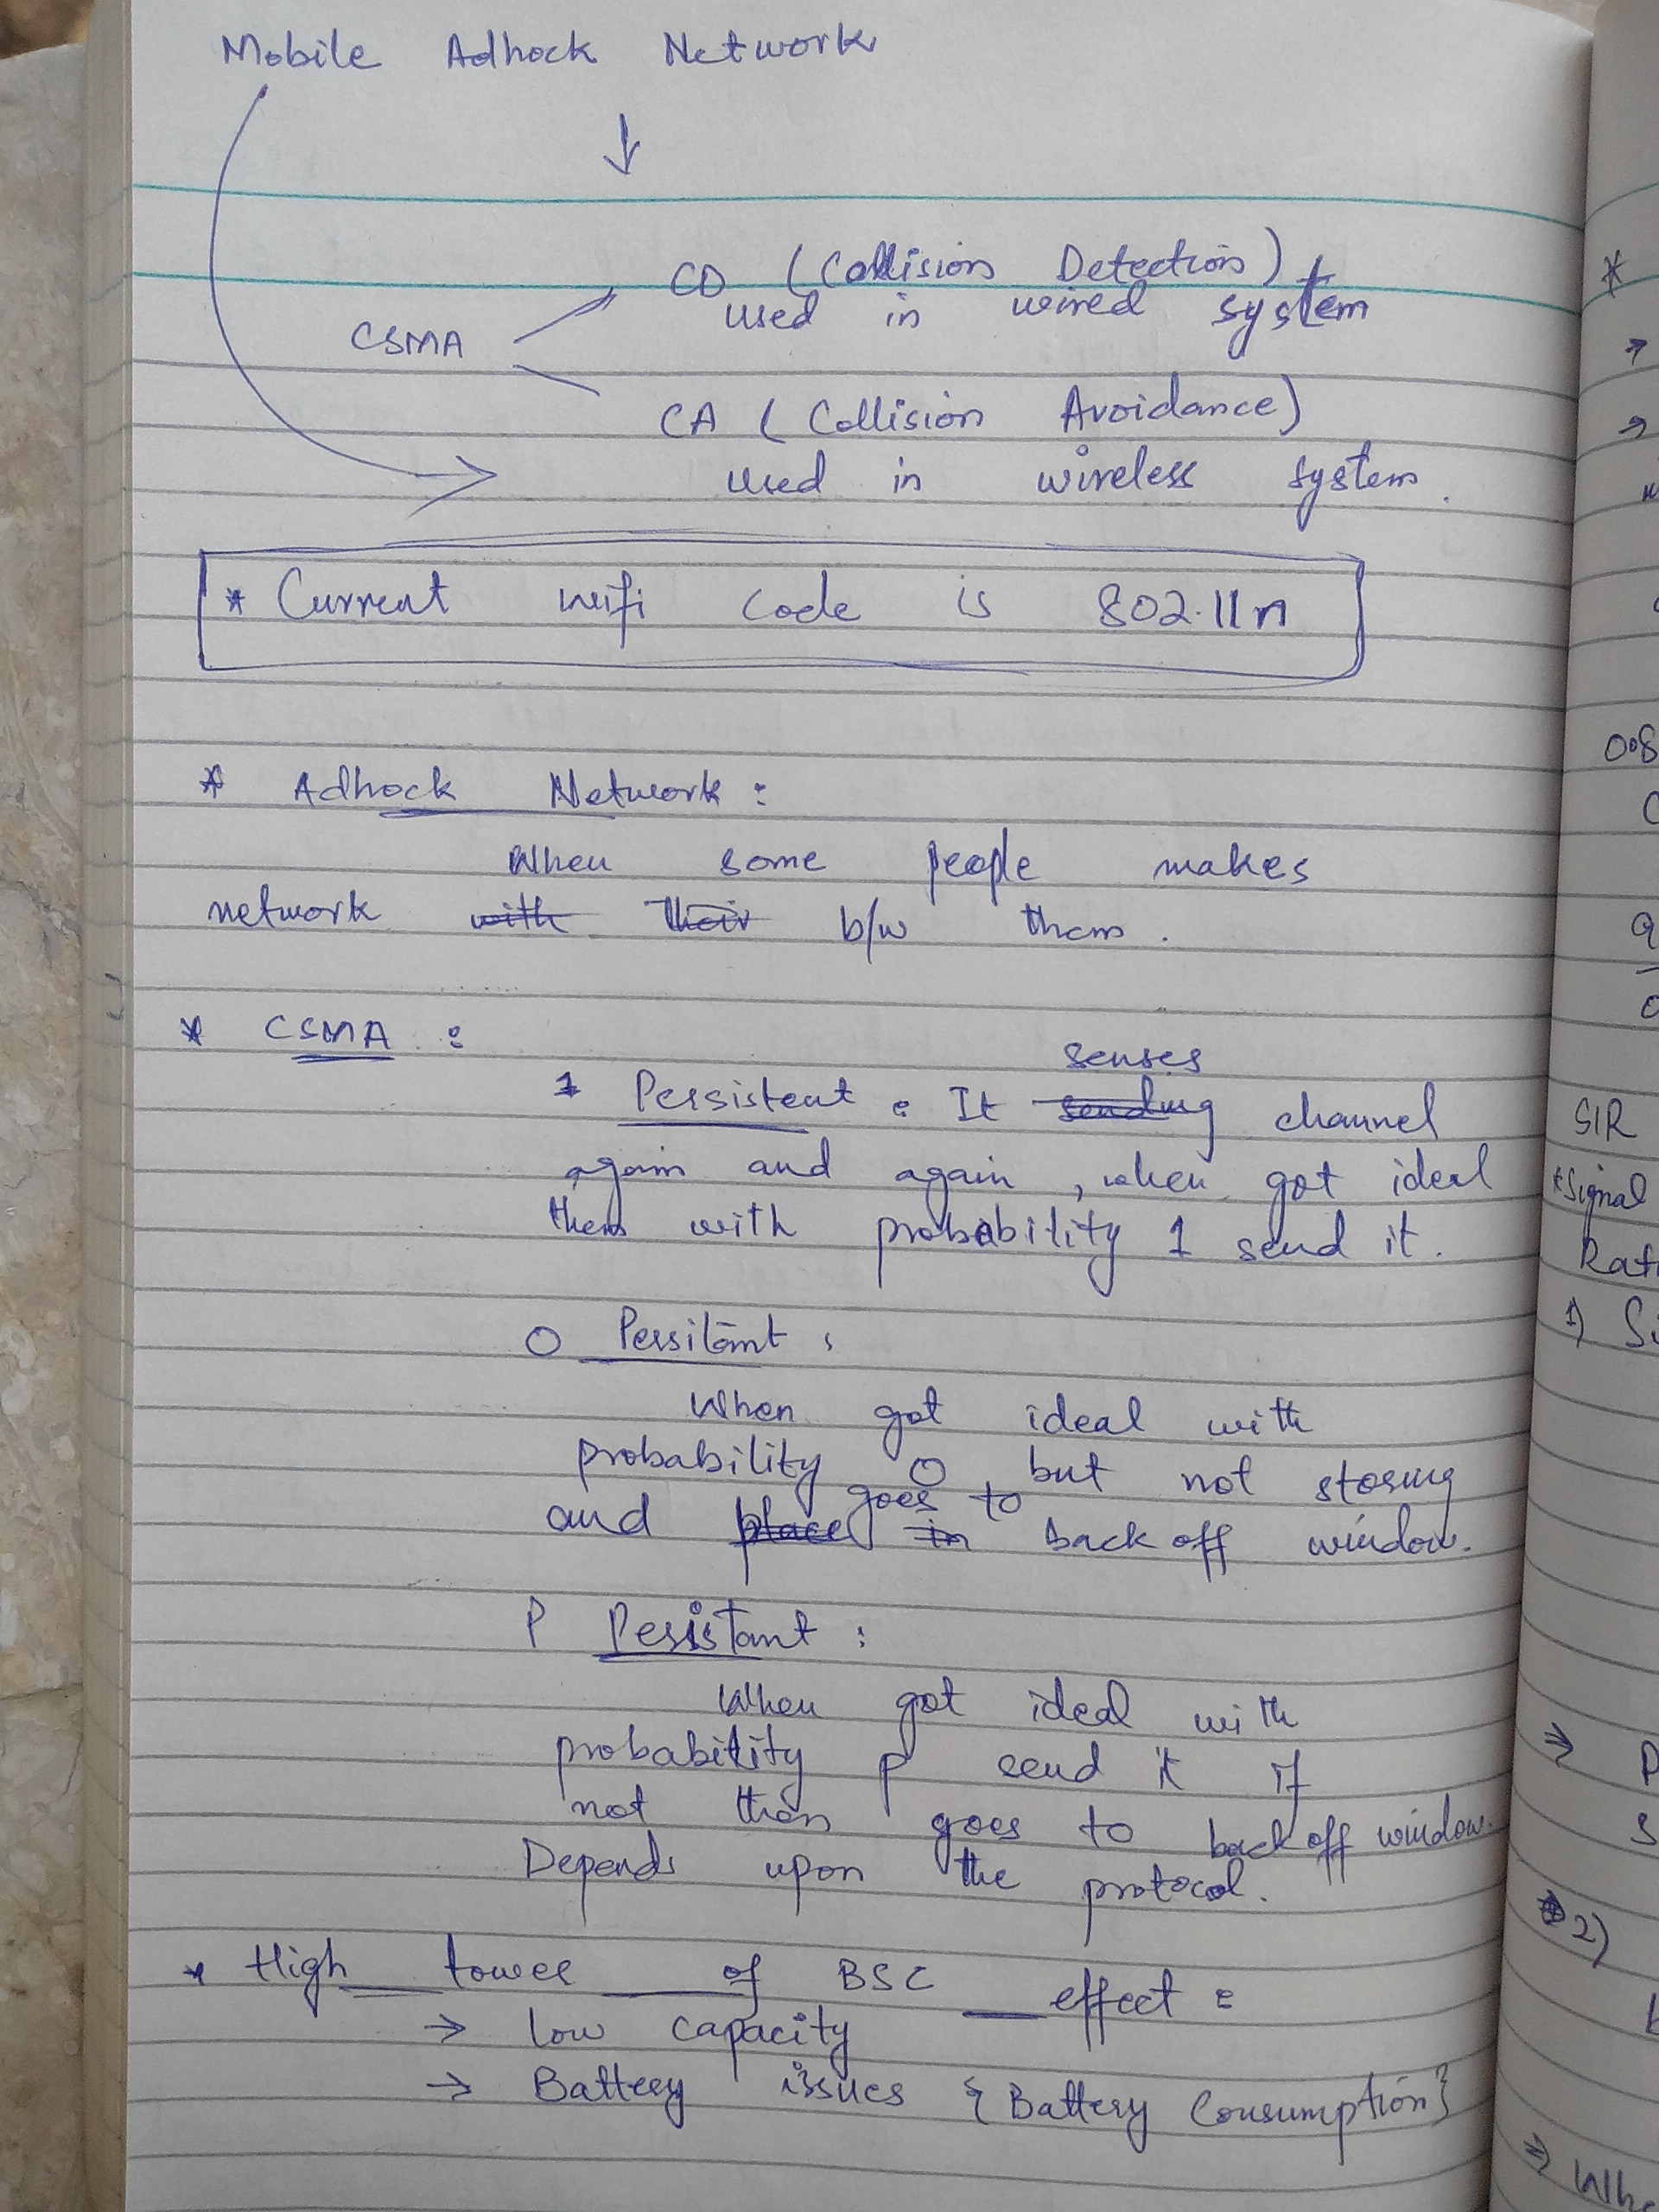 Mobile Adhock Network
CD (Collision Detection)
used in wired system
CSMA
CA (Collision Avoidance)
used in wireless system.
* Current wifi code is 802.11n
* Adhock Network :
When some people makes
network with their b/w them.
* CSMA :
senses
1 Persistent : It sending channel
again and again, when got ideal
then with probability 1 send it.
O Persitant :
When got ideal with
probability O, but not storing
goes to
and place in back off window.
P Persistant :
When got ideal with
probability p send it if
not then goes to back off window.
Depends upon the protocol.
* High tower of BSC effect :
→ low capacity
→ Battery issues {Battery Consumption}
*
SIR
*Signal
1)
2)